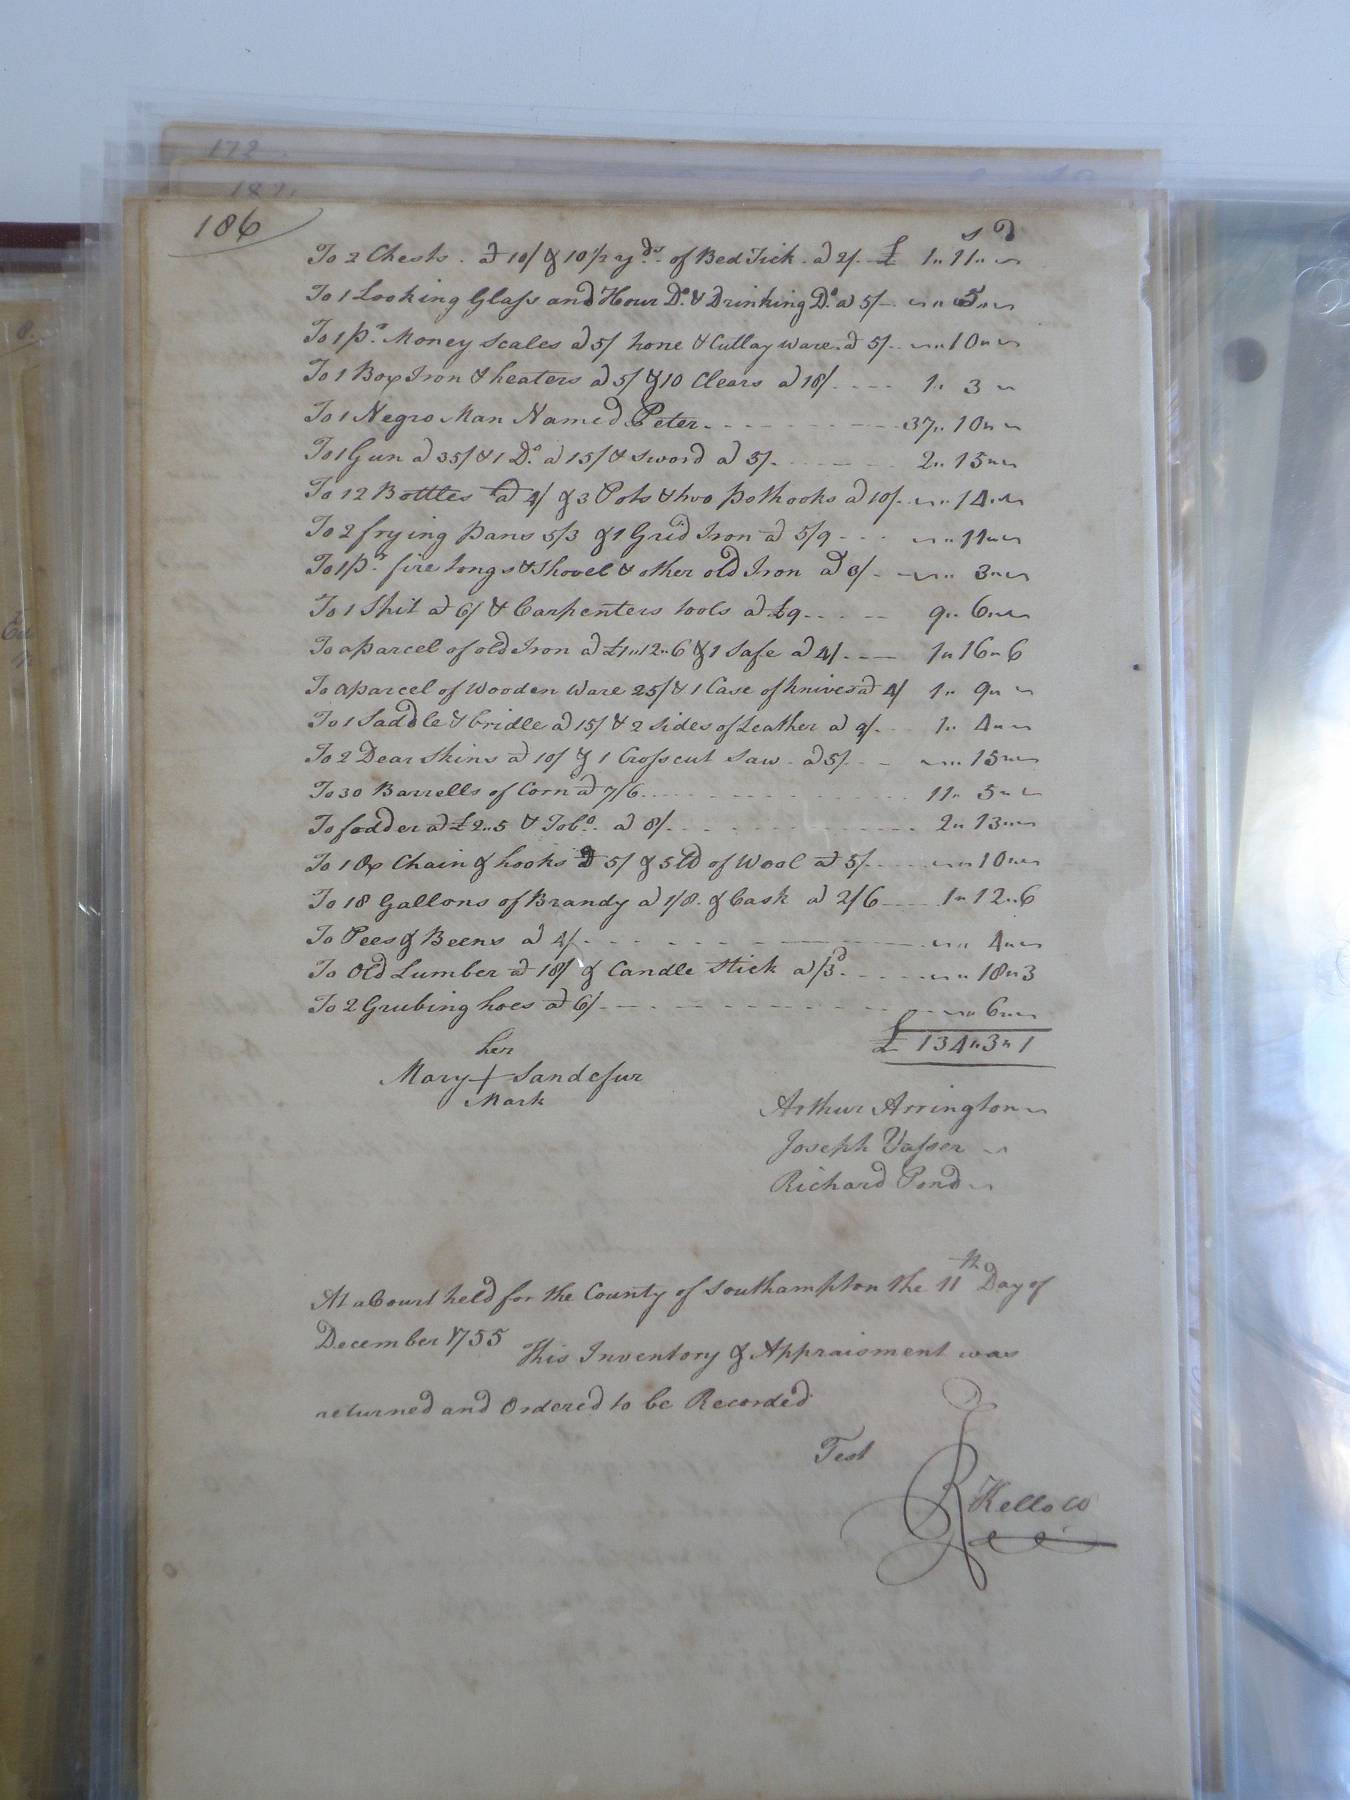 172
182
186
s D
To 2 Chests. a 10/ & 10 1/2 yds. of Bed Tick. a 2/. £ 1" 11" "
To 1 Looking Glass and Hour Do. & Drinking Do. a 5/- " 5" "
To 1 pr. Money Scales a 5/ hone & Cutlay ware. a 5/. " 10" "
To 1 Box Iron & heaters a 5/ & 10 Clears a 18/. 1" 3 "
To 1 Negro Man Named Peter. 37" 10" "
To 1 Gun a 35/ & 1 Do. a 15/ & Sword a 5/. 2" 15" "
To 12 Bottles a 4/ & 3 Pots & two pothooks a 10/. " 14" "
To 2 frying pans 5/3 & 1 Grid Iron a 5/9 " 11" "
To 1 pr. fire tongs & Shovel & other old Iron a 3/. " 3" "
To 1 Spit a 6/ & Carpenters tools a £9. 9" 6" "
To a parcel of old Iron a £1" 12" 6 & 1 Safe a 4/. 1" 16" 6
To a parcel of Wooden Ware 25/ & 1 Case of knives a 4/ 1" 9" "
To 1 Saddle & bridle a 15/ & 2 Sides of Leather a 9/. 1" 4" "
To 2 Dear Skins a 10/ & 1 Crosscut Saw. a 5/. " 15" "
To 30 Barrells of Corn a 7/6. 11" 5" "
To fodder a £2" 5 & Tobo. a 8/. 2" 13" "
To 1 Ox Chain & hooks a 5/ & 5 lb of Wool a 5/. " 10" "
To 18 Gallons of Brandy a 1/8. & Cask a 2/6 1" 12" 6
To Pees & Beens a 4/. " 4" "
To Old Lumber a 18/ & Candle Stick a /3d. " 18" 3
To 2 Grubing hoes a 6/ " 6" "
£ 134" 3" 1
her
Mary + Sandefur
Mark
Arthur Arrington
Joseph Vasser
Richard Pond
At a Court held for the County of Southampton the 11th Day of
December 1755 This Inventory & Appraisment was
returned and Ordered to be Recorded
Test
R Kello